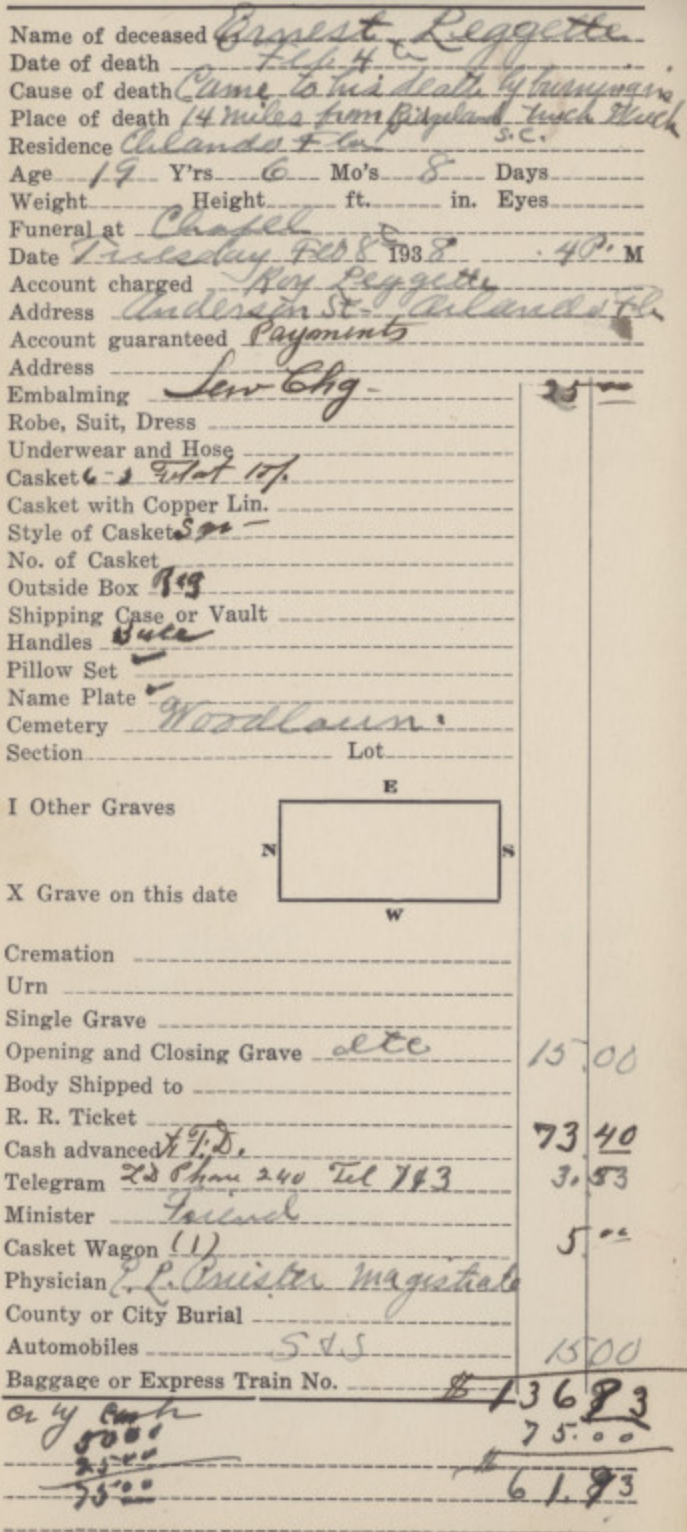 Name of deceased Ernest Leggette
Date of death Feb. 4
Cause of death Came to his death by burning in
Place of death 14 miles from Ridgeland truck Wreck
Residence Orlando Fla S.C.
Age 19 Y'rs 6 Mo's 8 Days
Weight Height ft. in. Eyes
Funeral at Chapel
Date Tuesday Feb 8 1938 4 P. M
Account charged Roy Leggette
Address Anderson St - Orlando Fla
Account guaranteed Payments
Address
Embalming Serv Chg - 25 00
Robe, Suit, Dress
Underwear and Hose
Casket 6-3 Flat top
Casket with Copper Lin.
Style of Casket
No. of Casket
Outside Box Reg
Shipping Case or Vault
Handles
Pillow Set ✓
Name Plate ✓
Cemetery Woodlawn.
Section Lot
E
I Other Graves
N S
X Grave on this date
W
Cremation
Urn
Single Grave
Opening and Closing Grave etc 15.00
Body Shipped to
R. R. Ticket
Cash advanced F.D. 73.40
Telegram LD Phone 240 Tel 113 3.53
Minister Friend
Casket Wagon (1) 5 00
Physician E. L. Magistrate
County or City Burial
Automobiles S & S 15 00
Baggage or Express Train No. $ 136 93
Cash
50 00 75.00
25 00
75 00 $ 61.93